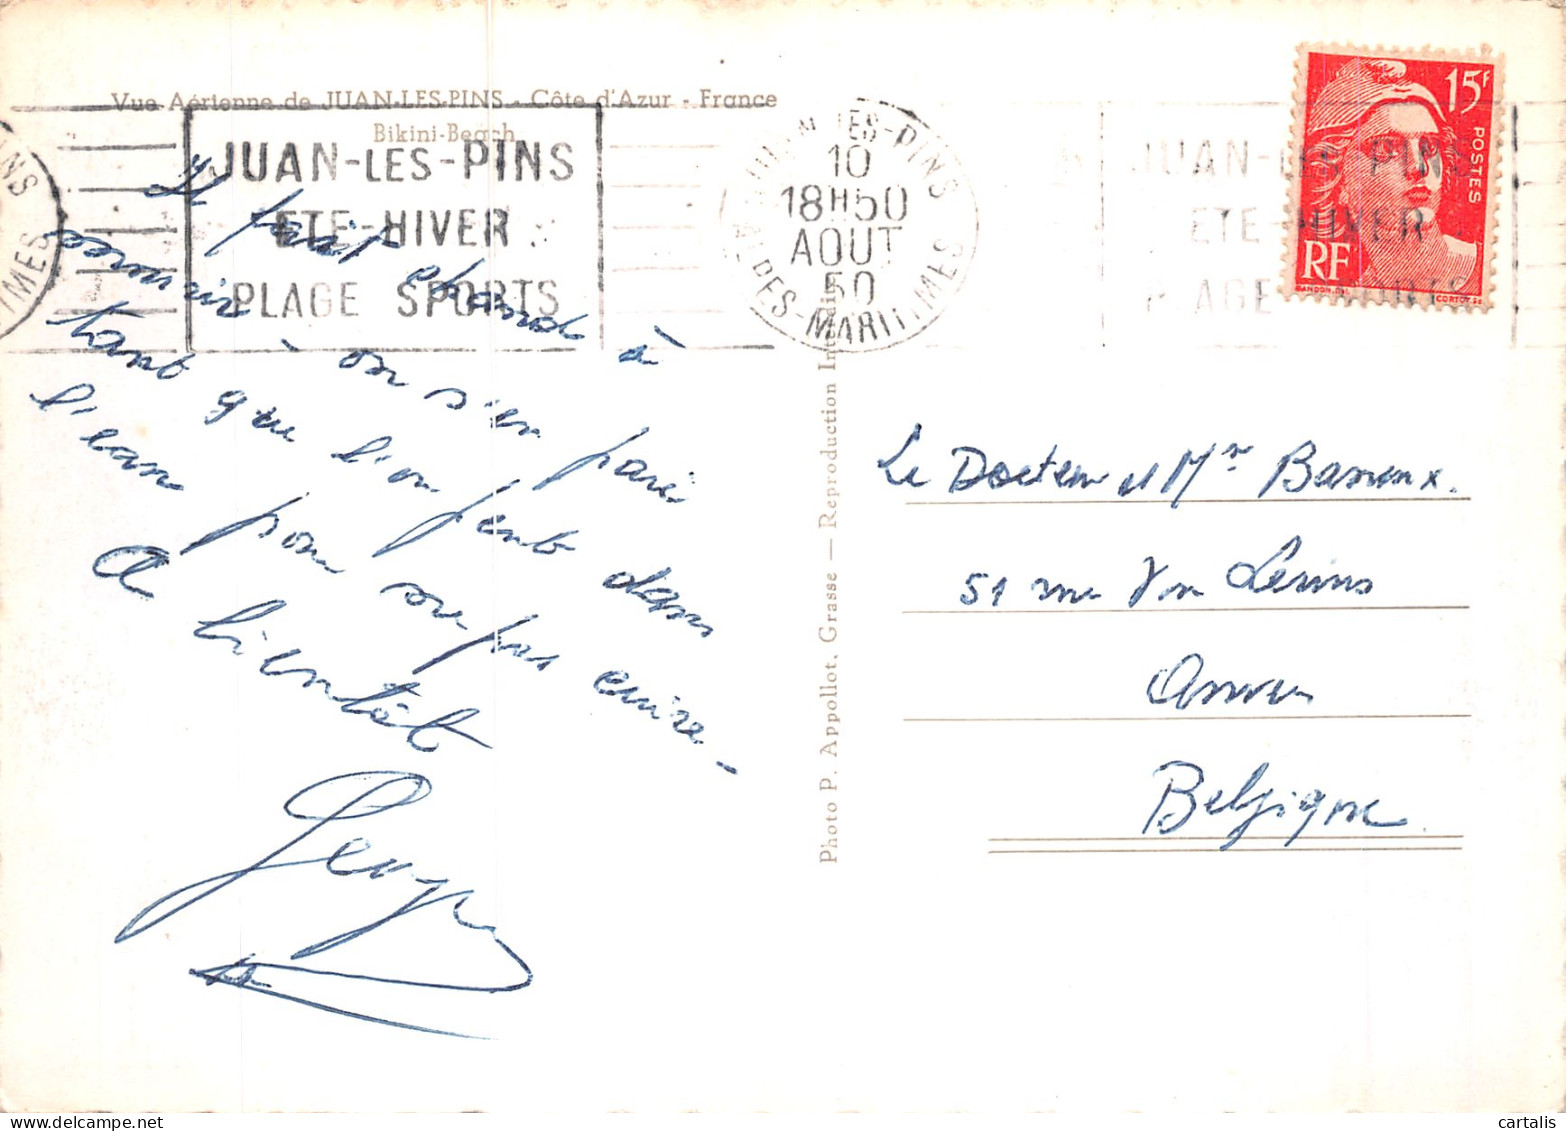 Vue Aérienne de JUAN-LES-PINS - Côte d'Azur - France
Bikini-Beach
JUAN-LES-PINS
ETE-HIVER
PLAGE SPORTS
JUAN-LES-PINS
10
18H50
AOUT
50
ALPES-MARITIMES
PINS
IMES
JUAN-LES-PINS
ETE-HIVER
PLAGE SPORTS
15F
POSTES
RF
GANDON.DEL
CORTOT.SC
Il fait chaud à
mourir - on s'en
tant que l'on peut dans
l'eau pour ne pas cuire -
A bientôt
Photo P. Appollot, Grasse — Reproduction Interdite
Le Docteur et Mme
51 rue Van
Anvers
Belgique
cartalis